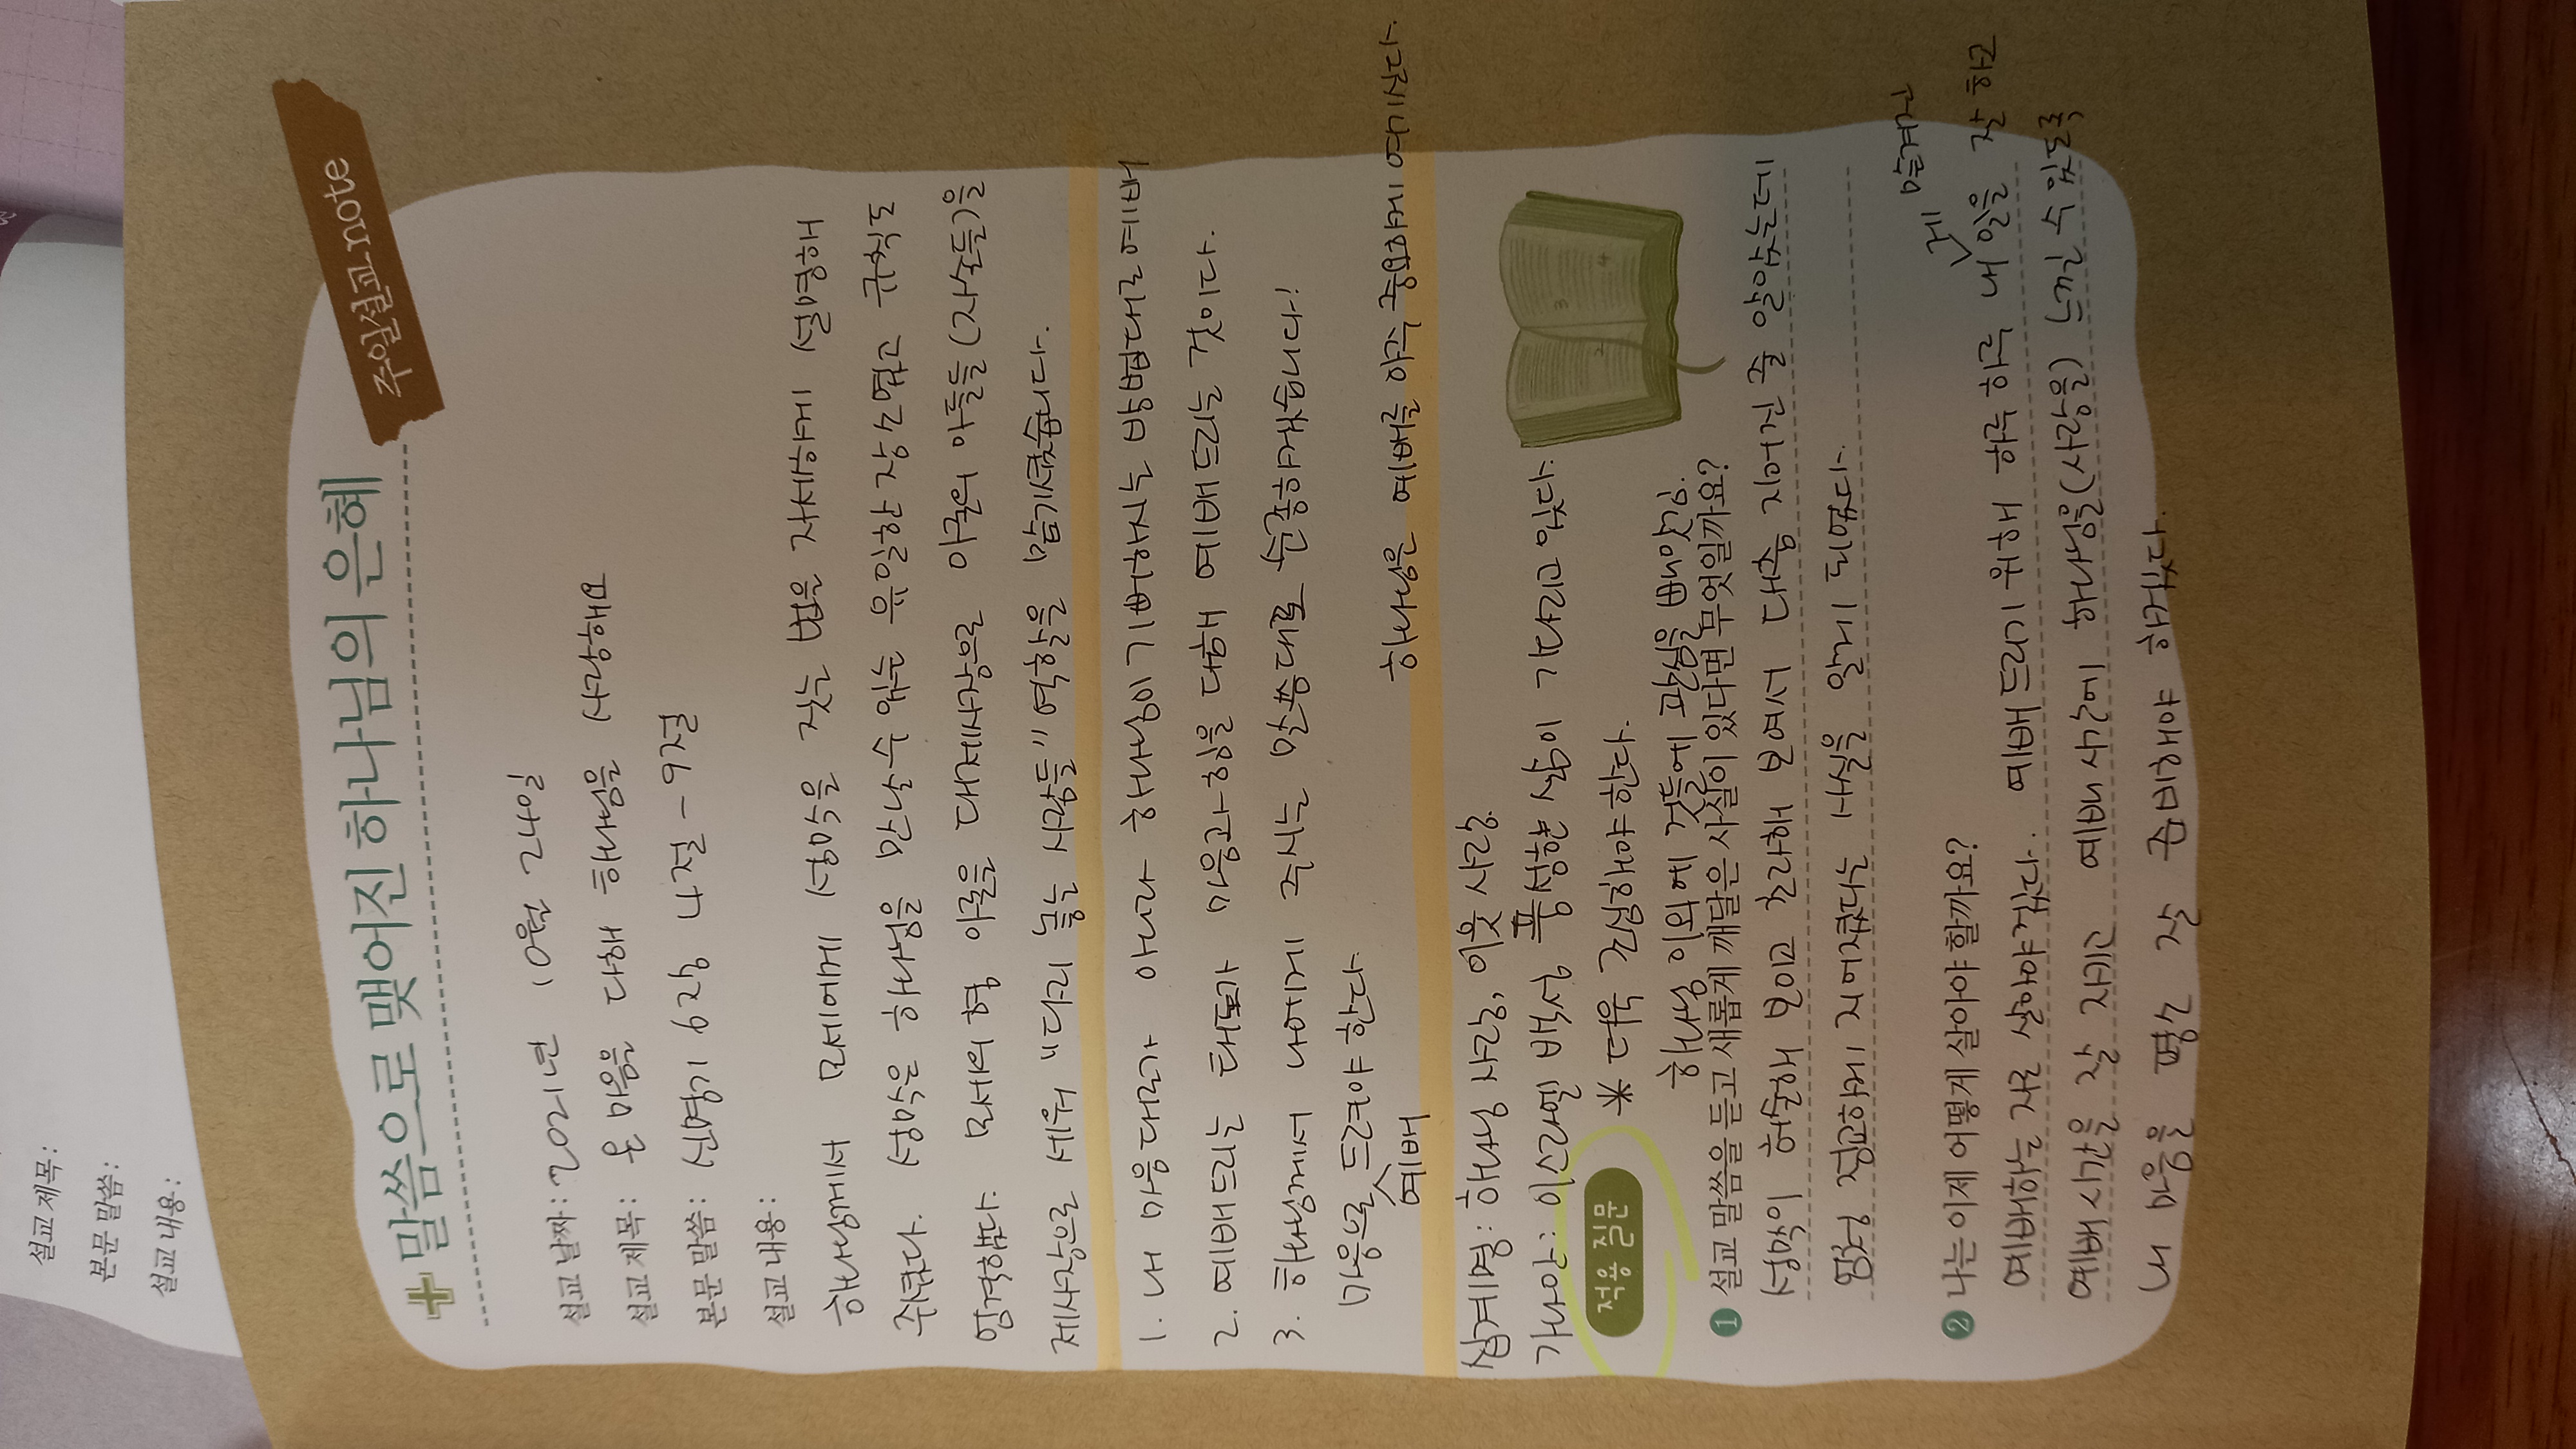 설교 제목:
본문 말씀:
설교 내용:
주일설교 note
말씀으로 맺어진 하나님의 은혜
설교 날짜: 2021년 10월 24일
설교 제목: 온 마음을 다해 하나님을 사랑해요
본문 말씀: 신명기 6장 4절 - 9절
설교 내용:
하나님께서 모세에게 성막을 짓는 법을 자세하게 설명해
주셨다. 성막은 하나님을 만날 수 있는 유일한 장소였고 규칙도
엄격했다. 모세의 형 아론을 대제사장으로 아론의 아들들(자손들)을
제사장으로 세워 "다리 놓는 사람들" 역할을 맡기셨습니다.
1. 내 마음대로가 아니라 하나님이 기뻐하시는 방법대로 예배
2. 예배드리는 태도가 마음과 힘을 다해 예배드리는 것이다.
3. 하나님께서 나에게 주시는 말씀대로 순종하겠습니다!
하나님은 예배를 아주 중요하게 여기신다.
마음으로 드려야 한다
예배
십계명: 하나님 사랑, 이웃 사랑
가나안: 이스라엘 백성 풍성한 삶이 기다리고 있다.
적용 질문
* 더욱 조심해야 한다.
하나님 이외에 것들에 관심을 빼앗김.
1 설교 말씀을 듣고 새롭게 깨달은 사실이 있다면 무엇일까요?
성막이 허술해 보이고 초라해 보여서 대충 지어진 줄 알았는데
엄청 정교하게 지어졌다는 사실을 알게 되었다.
2 나는 이제 어떻게 살아야 할까요?
게 맡겨진
예배하는 자로 살아야겠다. 예배드리기 위해 하루 하루 내 일을 잘 하고
예배 시간을 잘 지키고 예배 시간에 하나님을(사랑을) 느낄 수 있도록
내 마음을 평소 잘 준비해야 하겠다.